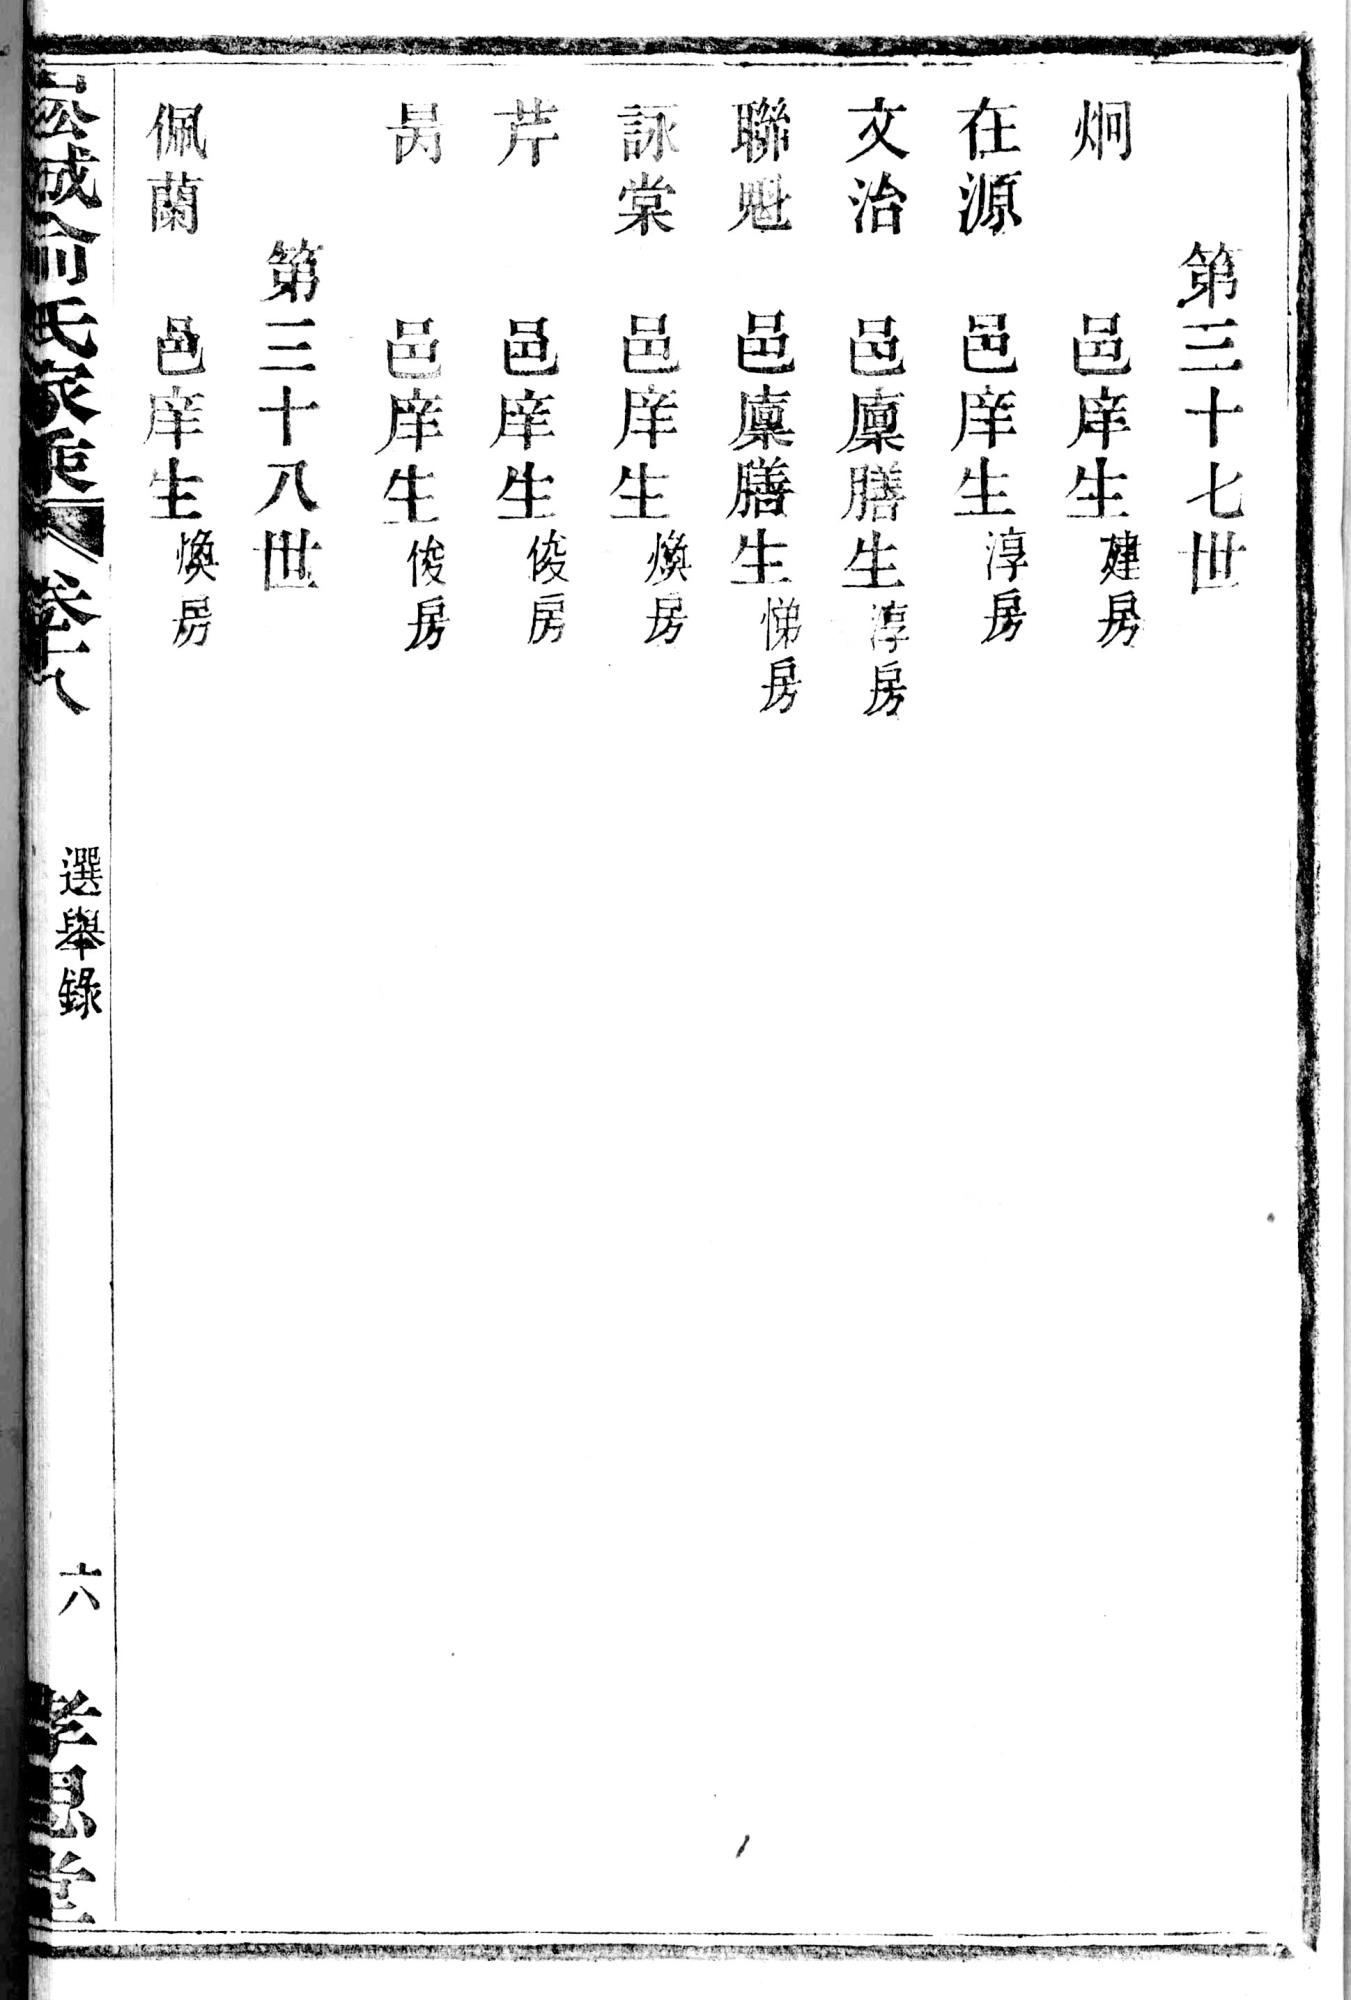 第三十七世
炯　邑庠生建房
在源　邑庠生淳房
文治　邑廩膳生淳房
聯魁　邑廩膳生悌房
詠棠　邑庠生煥房
芹　邑庠生俊房
邑庠生俊房
第三十八世
佩蘭　邑庠生煥房
崧城俞氏家乘　卷十八　選舉錄　六　孝思堂